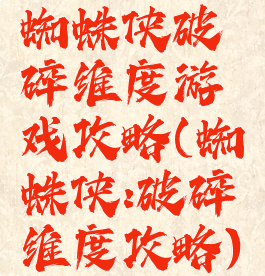 蜘蛛侠破
碎维度游
戏攻略(蜘
蛛侠:破碎
维度攻略)